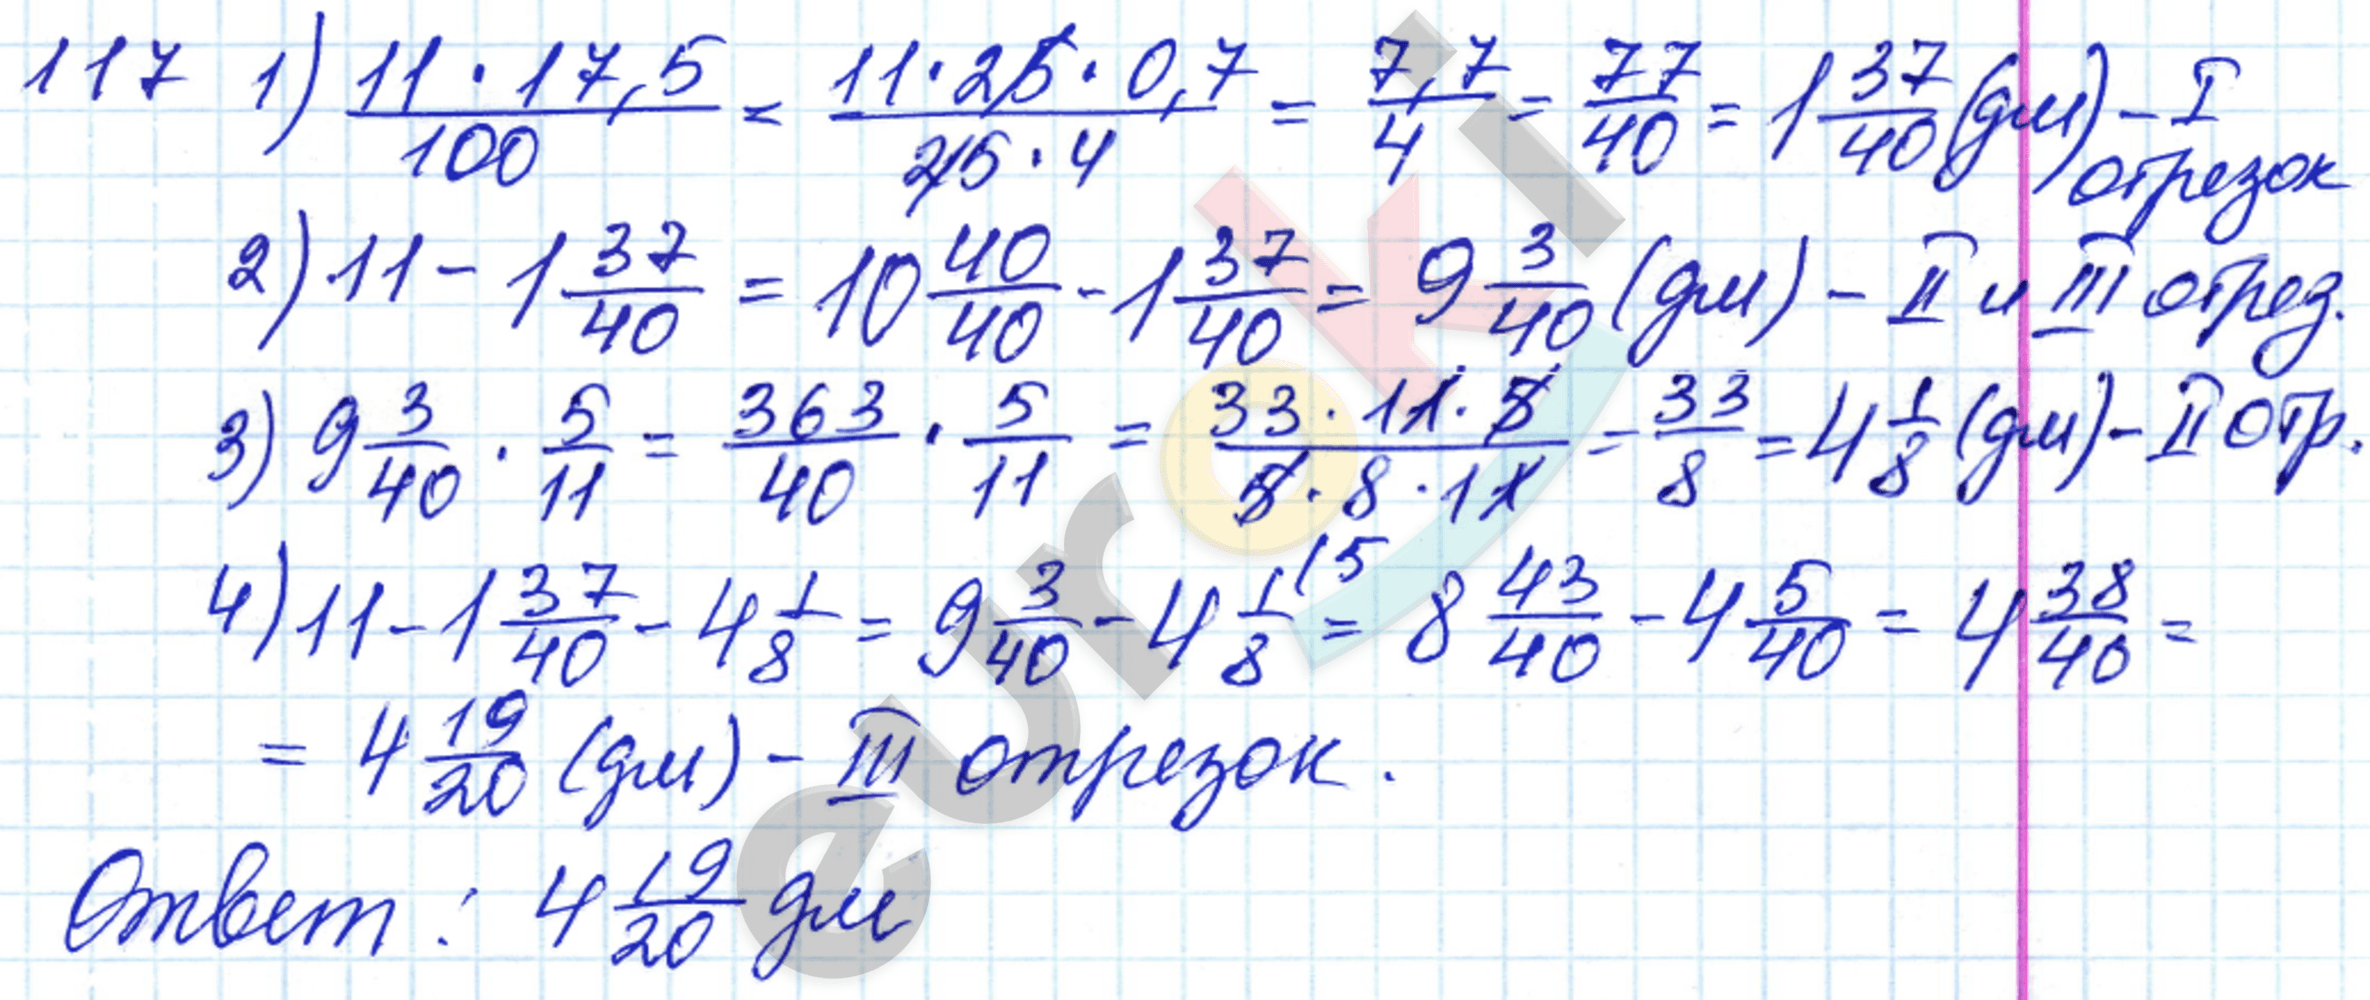 117 1) 11·17,5/100 = 11·25·0,7/25·4 = 7,7/4 = 77/40 = 1 37/40 (дм) - I отрезок
2) 11 - 1 37/40 = 10 40/40 - 1 37/40 = 9 3/40 (дм) - II и III отрез.
3) 9 3/40 · 5/11 = 363/40 · 5/11 = 33·11·5/5·8·11 = 33/8 = 4 1/8 (дм) - II отр.
4) 11 - 1 37/40 - 4 1/8 = 9 3/40 - 4 1/8 (5 = 8 43/40 - 4 5/40 = 4 38/40 =
= 4 19/20 (дм) - III отрезок.
Ответ: 4 19/20 дм
euroki